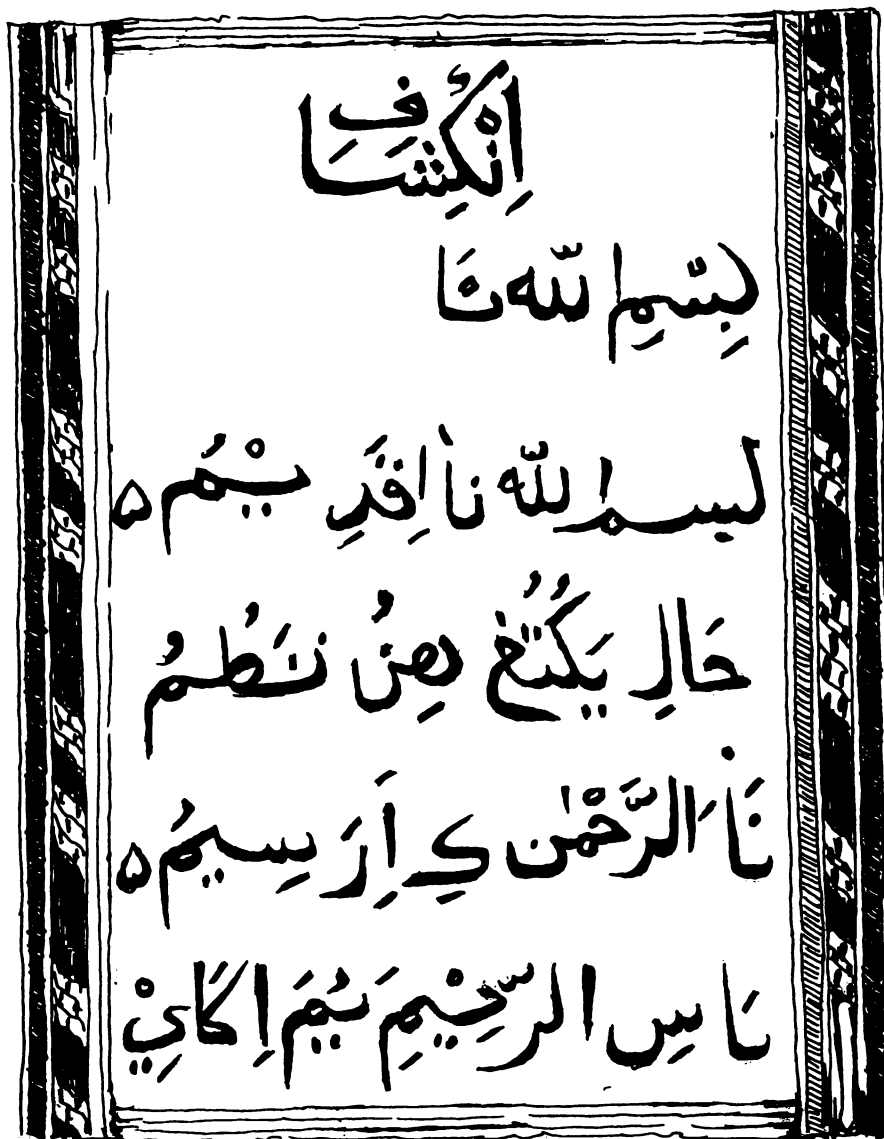 اِنْكِشَافِ
بِسْمِ اللّه نَا
بسم اللّه نا اِقَدِ يْمُ ۵
حَالِ يَكُتُغ هِنُ نَظُمُ
نَا الرَّحْمٰن كِ اِرَسِيمُ ۵
بَا سِ الرَّحِيْمِ يُيُمَ اِكَايِْ